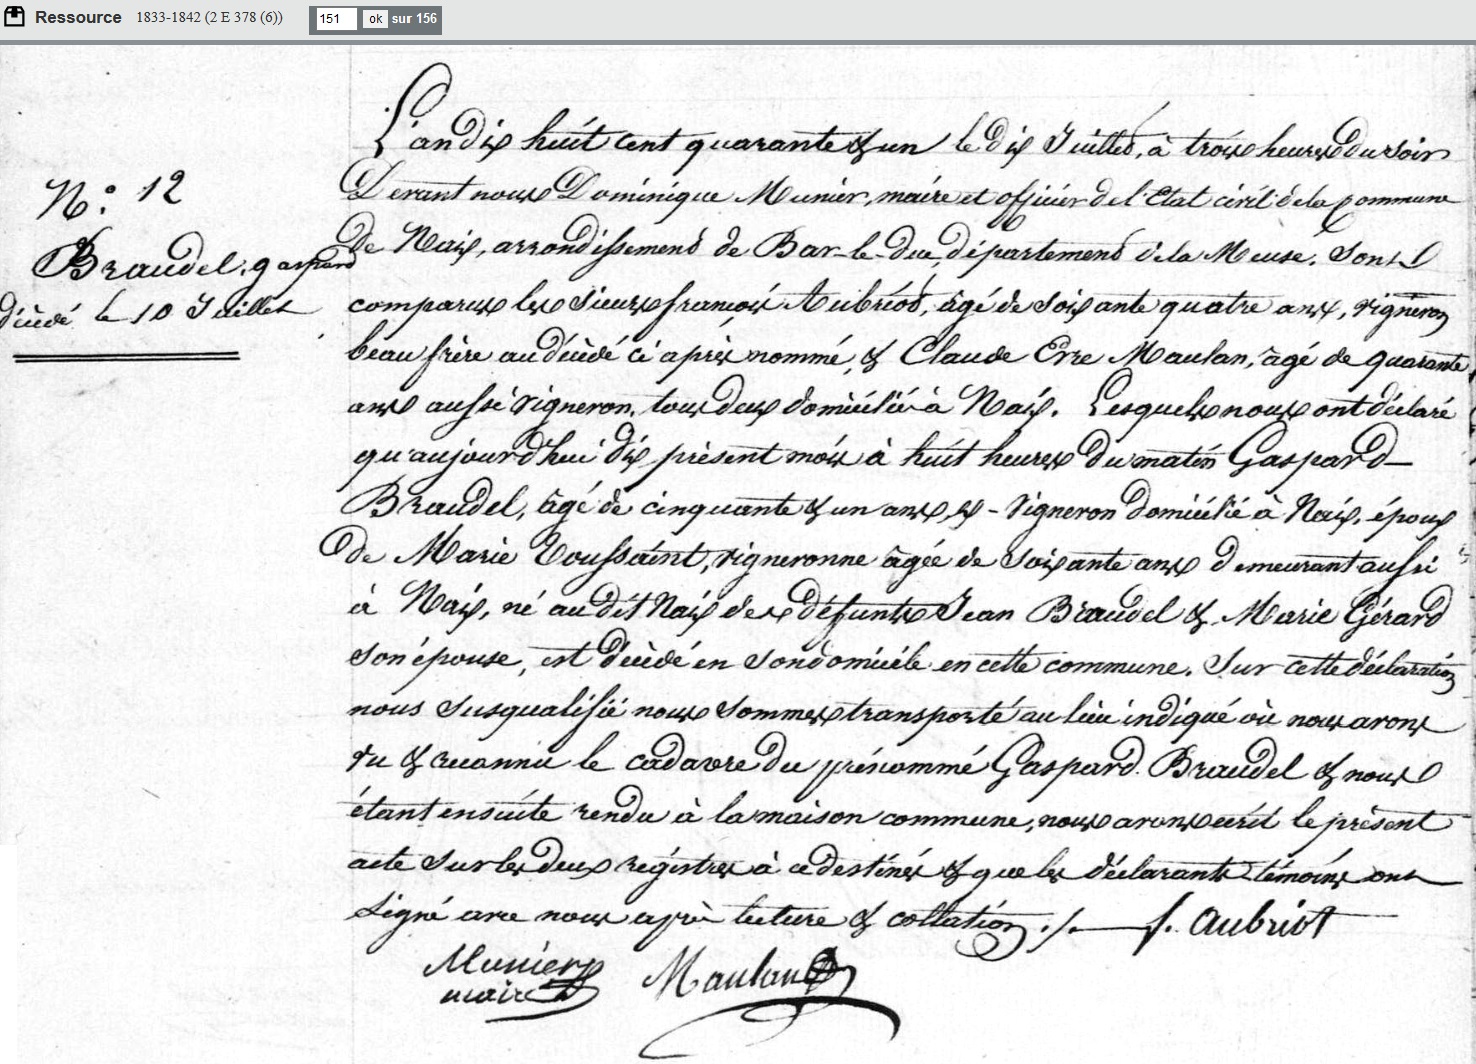 Ressource 1833-1842 (2 E 378 (6)) 151 ok sur 156
L'an dix huit cent quarante & un le dix Juillet, à trois heures du soir
Devant nous Dominique Munier, maire et officier de l'Etat civil de la commune
De Naix, arrondissement de Bar-le-Duc, département de la Meuse. Sont
comparus les sieurs françois Aubriot, âgé de soixante quatre ans, vigneron
beau frère au décédé ci après nommé, & Claude Evre Maulan, âgé de quarante
ans aussi vigneron, tous deux domicilié à Naix. Lesquels nous ont déclaré
qu'aujourd'hui dix présent mois à huit heures du matin Gaspard
Braudel, âgé de cinquante & un ans, - vigneron domicilié à Naix, époux
De Marie Toussaint, vigneronne âgée de soixante ans demeurant aussi
à Naix, né au dit Naix des défunts Jean Braudel & Marie Gérard
son épouse, est décédé en son domicile en cette commune. Sur cette déclaration
nous susqualifié nous sommes transporté au lieu indiqué où nous avons
vu & reconnu le cadavre du prénommé Gaspard Braudel & nous
étant ensuite rendu à la maison commune, nous avons écrit le présent
acte sur les deux registres à ce destinés & que les déclarants témoins ont
signé avec nous après lecture & collation ./.
f. aubriot
Munier
maire
Maulan
N.° 12
Braudel, gaspard
décédé le 10 Juillet